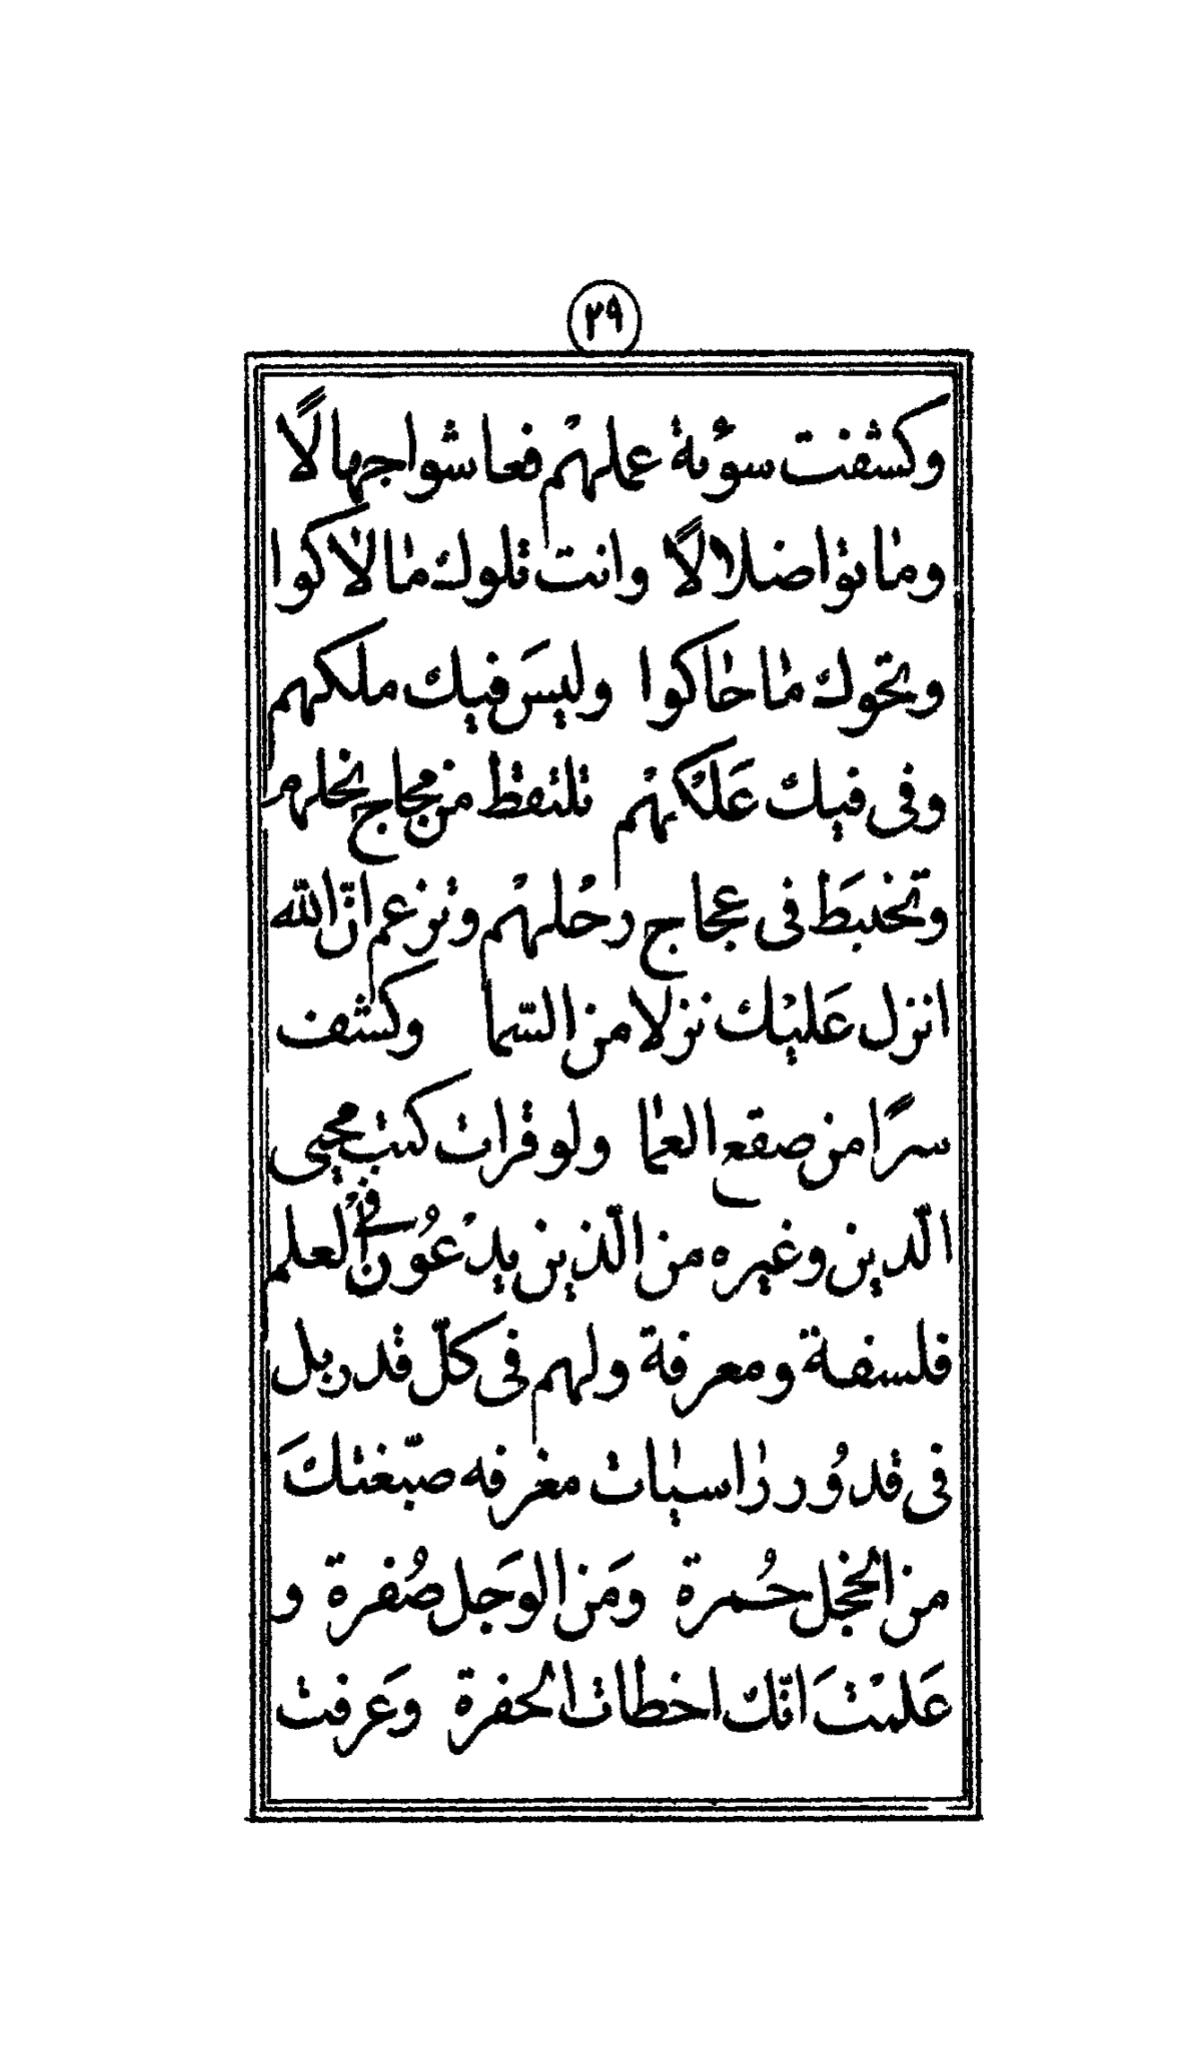 ٢٩
وكشفت سوٴىة عملهم فعاشوا جهالًا
وماتوا ضلالًا وانت تلوك ما لاكوا
وتحوك ما حاكوا وليسَ فيك ملكهم
وفى فيك عَلكهم تلتقط من مجاج نحلهم
وتختبَط فى عجاج رحُلهم وتزعم انّ الله
انزل عَليْك نزلا من السّما وكشف
سرًا من صقع العما ولو قرات كتب محيى
الّدين وغيره من الّذين يدْعُون فى العلم
فلسفة ومعرفة ولهم فى كلّ قدر بل
فى قدوُر راسيات مغرفه صبّغتكَ
من الخجل حُمرة ومَن الوَجل صُفرة و
عَلمْتَ انّك اخطات الحفرة وعَرفت